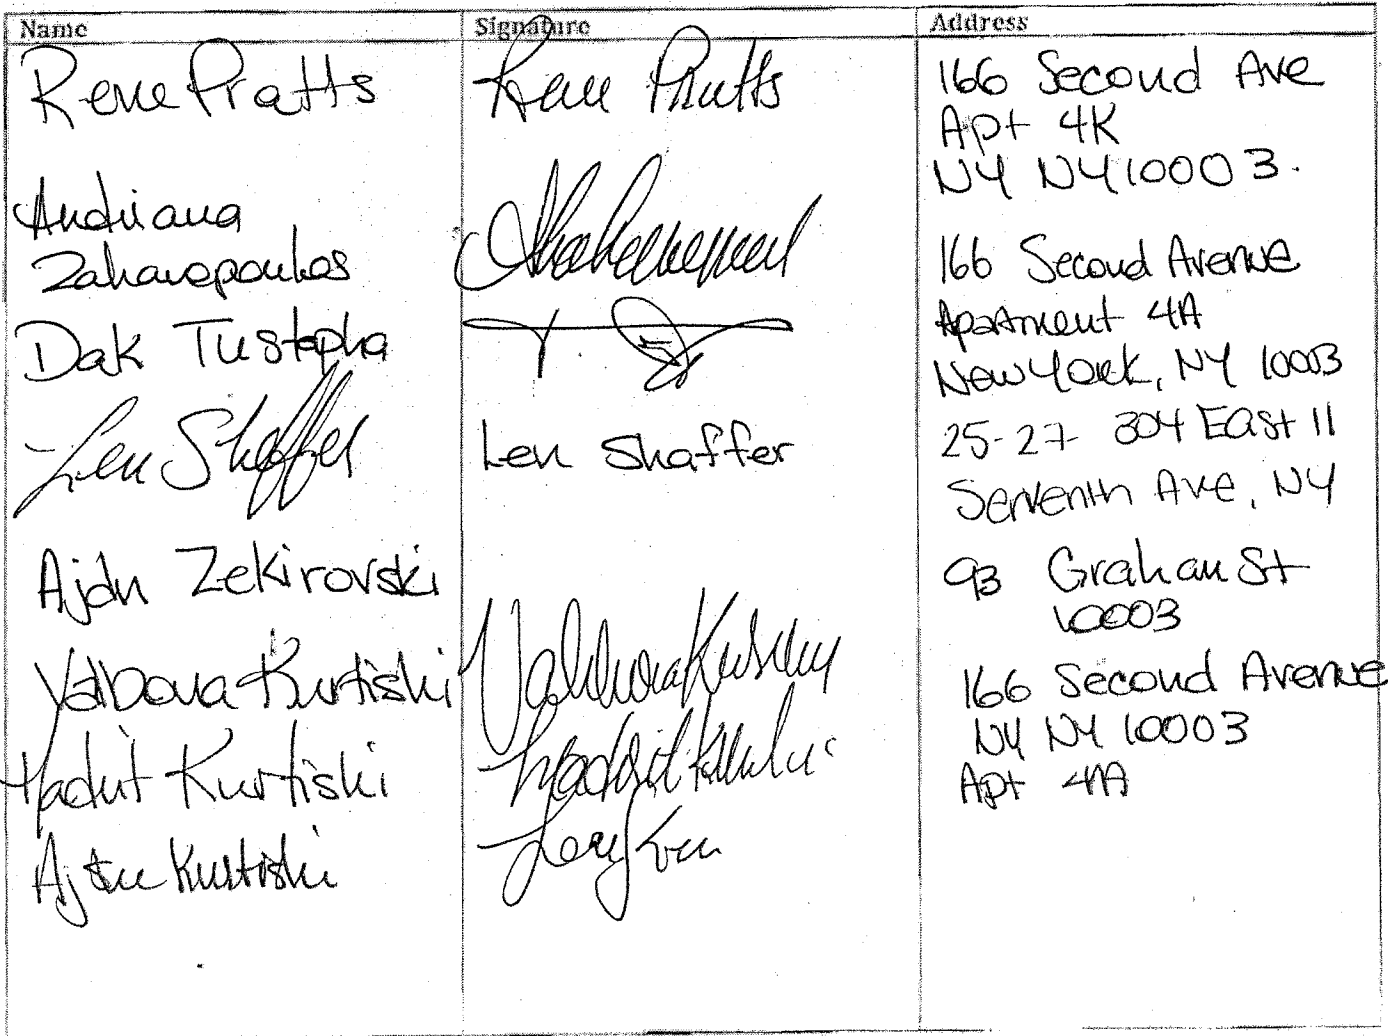 Name Signature Address
Rene Pratts Rene Pratts 166 Second Ave
Apt 4K
NY NY 10003.
Andriana
Zaharopoulos 166 Second Avenue
Apartment 4A
Dak Tustapha New York, NY 10003
Len Shaffer Len Shaffer 25-27 304 East 11
Serventh Ave, NY
Ajdn Zekirovski 93 Graham St
10003
Valbova Kurtishi 166 Second Avenue
NY NY 10003
Kurtishi Apt 4A
Kurtishi